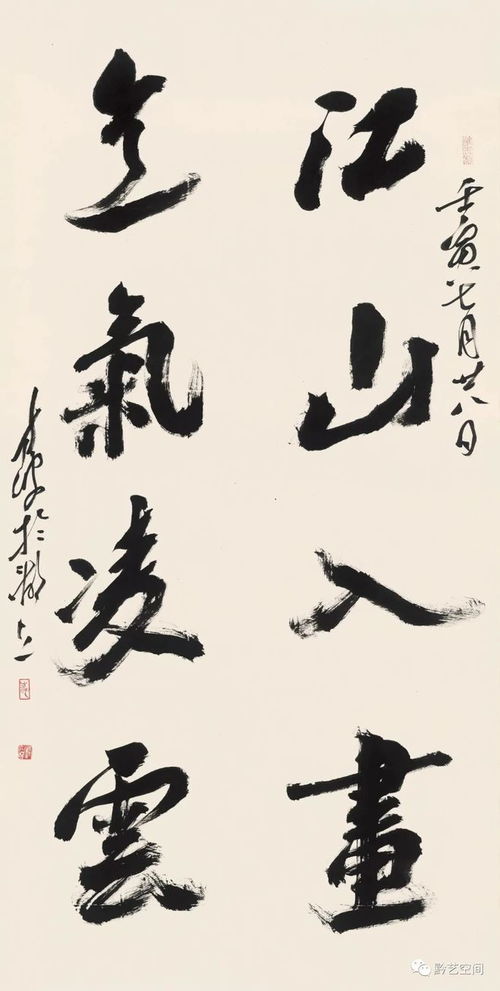 壬寅七月廿八日
江山入畫
氣凌雲
於湖上
黔艺空间